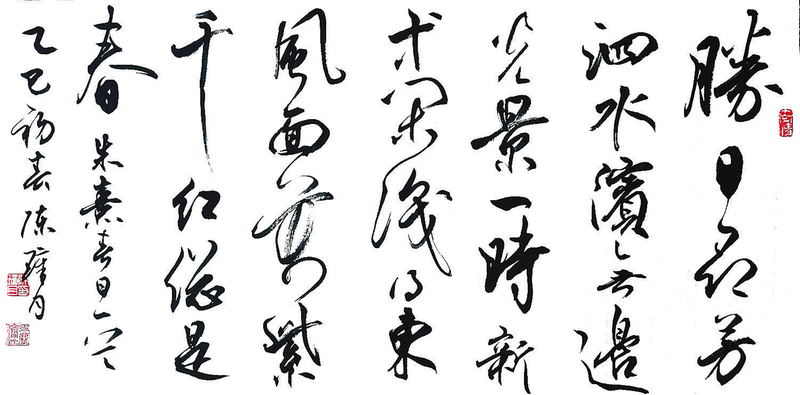 勝日尋芳
泗水濱無邊
光景一時新
等閒識得東
風面萬紫
千紅總是
春 朱熹春日一首
乙巳初春 陳